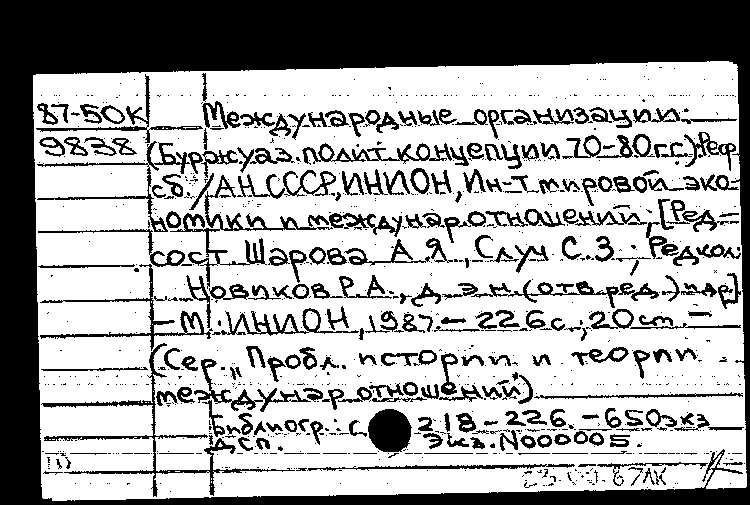 87-50К Международные организации:
9838 (Буржуаз. полит концепции 70-80гг.): Реф.
сб. / АН СССР, ИНИОН, Ин-т мировой эко-
номики и междунар. отношений; [Ред.-
сост. Шарова А Я, Случ С. З ; Редкол.:
Новиков Р. А., д. э. н. (отв. ред.) и др.]
- М.: ИНИОН, 1987. - 226 с.; 20 см. -
(Сер. „Пробл. истории и теории
междунар отношений")
Библиогр.: с. 218-226. - 650 экз
Дсп. Экз. N000005.
(1)
87 ЛК